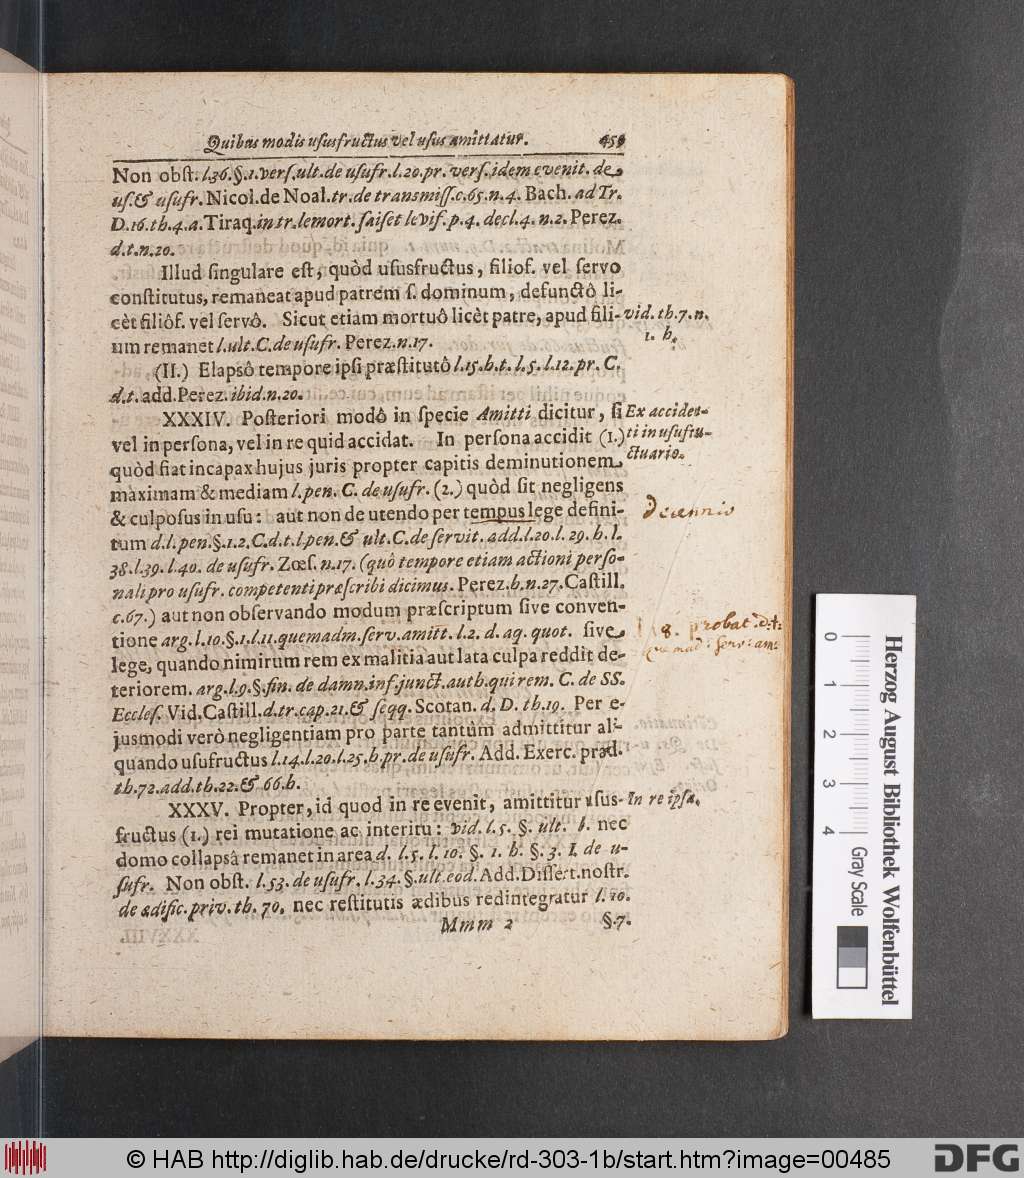 Quibus modis ususfructus vel usus amittatur. 459
Non obst. l.36.§.1.vers.ult.de usufr.l.20.pr.vers.idem evenit. de
us.& usufr. Nicol.de Noal.tr.de transmiss.c.65.n.4. Bach. ad Tr.
D.16.th.4.a.Tiraq.in tr.le mort. saiset le vif.p.4. decl.4. n.2. Perez.
d.t.n.20.
Illud singulare est, quòd ususfructus, filiof. vel servo
constitutus, remaneat apud patrem s. dominum, defunctô li-
cèt filiôf. vel servô. Sicut etiam mortuô licèt patre, apud fili-
vid. th.7. n.
1. h.
um remanet l.ult.C.de usufr. Perez.n.17.
(II.) Elapsô tempore ipsi præstitutô l.15.h.t.l.5.l.12.pr. C.
d.t.add.Perez.ibid.n.20.
XXXIV. Posteriori modô in specie Amitti dicitur, si
Ex acciden-
ti in usufru-
ctuario.
vel in persona, vel in re quid accidat. In persona accidit (1.)
quòd fiat incapax hujus juris propter capitis deminutionem
maximam & mediam l.pen. C. de usufr. (2.) quòd sit negligens
& culposus in usu: aut non de utendo per tempus lege defini-
Decennio
tum d.l.pen.§.1.2.C.d.t.l.pen.& ult.C.de servit. add.l.20.l.29. h.l.
38.l.39.l.40. de usufr. Zœs.n.17. (quô tempore etiam actioni perso-
nali pro usufr. competenti præscribi dicimus. Perez.h.n.27.Castill.
c.67.) aut non observando modum præscriptum sive conven-
tione arg.l.10.§.1.l.11.quemadm.serv.amitt.l.2. d. aq. quot. sive
8. probat d.t.
quemad: serv: am:
lege, quando nimirum rem ex malitia aut lata culpa reddit de-
teriorem. arg.l.9.§.fin. de damn.inf.junct.auth.qui rem. C. de SS.
Eccles. Vid.Castill.d.tr.cap.21.& seqq. Scotan. d. D. th.19. Per e-
jusmodi verò negligentiam pro parte tantùm admittitur ali-
quando usufructus l.14.l.20.l.25.h.pr.de usufr. Add. Exerc. præd.
th.72.add.th.22.& 66.h.
XXXV. Propter, id quod in re evenit, amittitur usus-
In re ipsa.
fructus (1.) rei mutatione ac interitu: vid. l.5. §. ult. h. nec
domo collapsâ remanet in area d. l.5. l. 10. §. 1. h. §. 3. I. de u-
sufr. Non obst. l.53. de usufr. l.34.§.ult.eod.Add.Dissert.nostr.
de ædific.priv.th. 70, nec restitutis ædibus redintegratur l.10.
Mmm 2 §.7.
Herzog August Bibliothek Wolfenbüttel
0 1 2 3 4 Gray Scale
© HAB http://diglib.hab.de/drucke/rd-303-1b/start.htm?image=00485
DFG